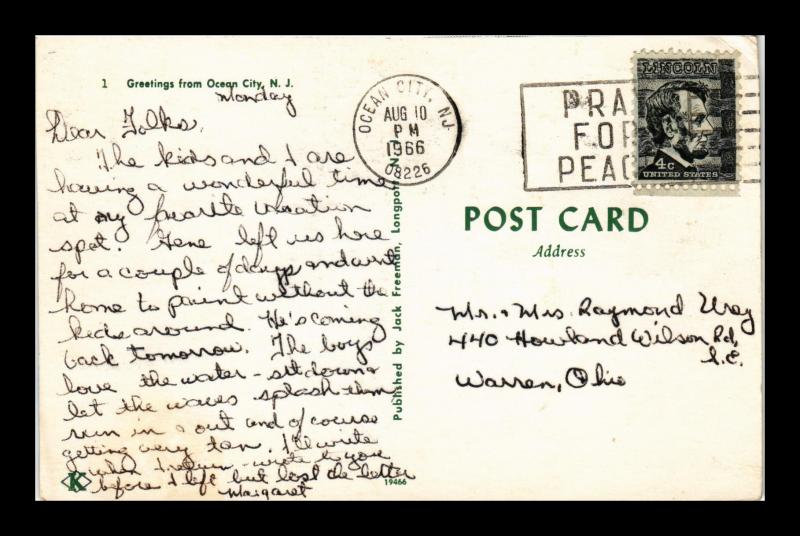 1 Greetings from Ocean City, N. J.
Monday
Dear Folks,
The kids and I are
having a wonderful time
at my favorite vacation
spot. Gene left us here
for a couple of days and went
home to paint without the
kids around. He's coming
back tomorrow. The boys
love the water - sit down &
let the waves splash them
run in & out and of course
getting very tan. I'll write
when I return - wrote to you
before I left but lost the letter
Margaret
K
19466
Published by Jack Freeman, Longport, N. J.
OCEAN CITY, NJ
AUG 10
PM
1966
08226
PRA
FOR
PEAC
LINCOLN
4c
UNITED STATES
POST CARD
Address
Mr. & Mrs. Raymond Urey
440 Howland Wilson Rd,
S.E.
Warren, Ohio